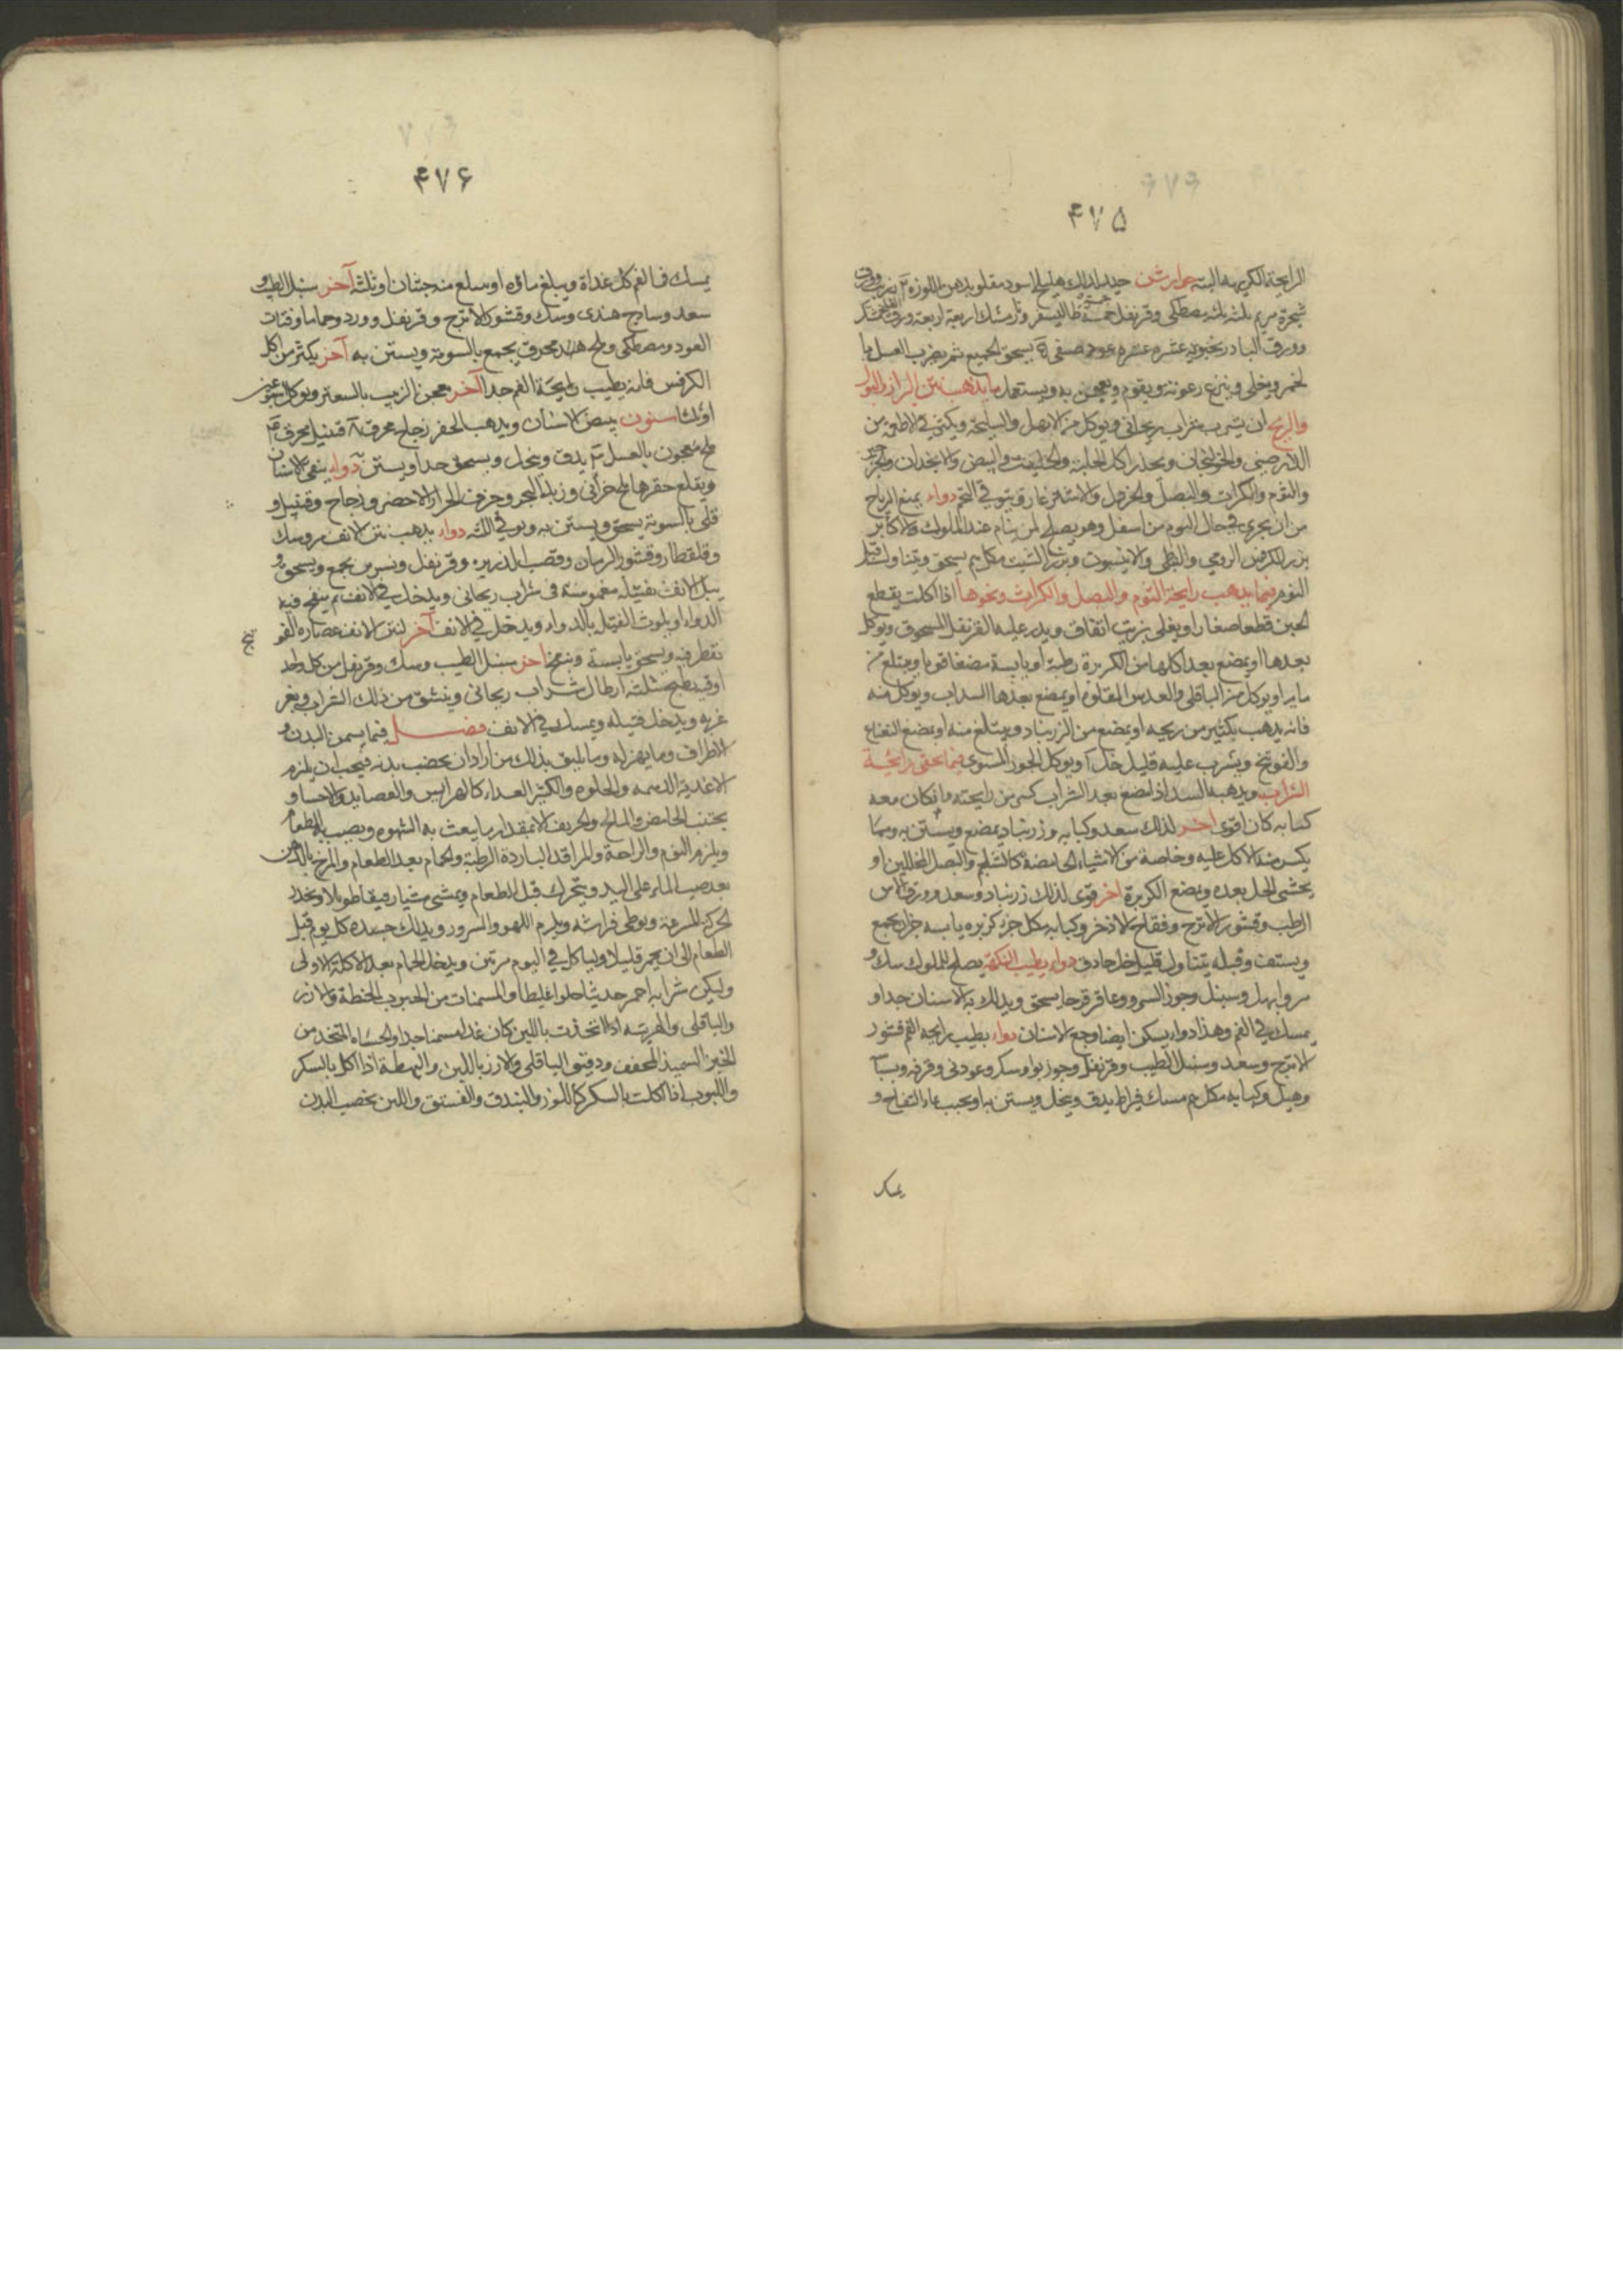 ۴۷۵
الرايحة الكريهة البتة جوارشن جيد لذلك هليلج اسود مقلو بدهن اللوز
شجرة مريم ثلثة ثلثة مصطكى وقرنفل خمسة
وورق البادرنجبويه عشره عشره عود صفى يسحق الجميع ثم يضرب العسل بما
لخمر ويغلى وينزع رغوته ويقوم ويعجن به ويستعمل ما يذهب نتن البراز والبول
والريح ان يشرب شراب ريحانى ويوكل من الابهل والسليخة ويكثر فى الاطعمة من
الدارصينى والخولنجان ويحذر اكل الحلبة والحلتيت والبيض والانجدان والجزر
والثوم والكراث والبصل والخردل والاشترغاز دواء يمنع الرياح
من ان يجرى فى حال النوم من اسفل وهو يصلح لمن ينام عند الملوك والاكابر
بزر الكرفس الرومى والنبطى والانيسون وبزر الشبت يسحق ويتناول قبل
النوم فيما يذهب رايحة الثوم والبصل والكراث ونحوها اذا اكلت يقطع
الجبن قطعا صغارا ويغلى بزيت انفاق ويذر عليه القرنفل المسحوق ويوكل
بعدها او يمضغ بعد اكلها من الكزبرة رطبة او يابسة مضغا قويا ويبتلع من
مايها او يوكل من الباقلى والعدس المقلوة او يمضغ بعدها السداب ويوكل منه
فانه يذهب بكثير من ريحه او يمضغ من الزرنباد ويبتلع منه او يمضغ النعناع
والفوتنج ويشرب عليه قليل خل او يوكل الجوز المشوى فيما يخفى رايحة
الشراب ويذهبه السعد اذا مضغ بعد الشراب كسر من رايحته وان كان معه
كبابه كان اقوى اخر لذلك سعد وكبابه وزرنباد يمضغ ويستن به ومما
يكسر منه الاكل عليه وخاصة من الاشياء الحامضة كالشلجم والبصل المخللين او
يحتسى الخل بعده ويمضغ الكزبرة اخر قوى لذلك زرنباد وسعد وورق الاس
الرطب وقشور الاترج وفقاح الاذخر وكبابه من كل جزء كزبره يابسه جزان يجمع
ويستف وقبله يتناول قليل خل حاذق دواء يطيب النكهة يصلح للملوك سك و
مر وابهل وسنبل وجوز السرو وعاقرقرحا يسحق ويدلك به الاسنان جدا و
يمسك فى الفم وهذا دواء يسكن ايضا وجع الاسنان دواء يطيب رايحه الفم قشور
الاترج وسعد وسنبل الطيب وقرنفل وجوز بوا وسكر وعود نى وقرفه
وهيل وكبابه من كل مسك قيراط يدق وينخل ويستن به او يحبب بماء التفاح و
يمسك
۴۷۶
يمسك فى الفم كل غداة ويبلغ ماؤه او يبلع منه حبتان او ثلثة آخر سنبل الطيب و
سعد وساذج هندى وسك وقشور الاترج وقرنفل وورد وحماما وفتات
العود ومصطكى وملح هندى محرق يجمع بالسوية ويستن به آخر يكثر من اكل
الكرفس فانه يطيب رايحة الفم جدا آخر معجن الزبيب بالسعتر ويوكل
سنون يبيض الاسنان ويذهب الحفر زجاج محرق ٨ قنبيل محرق
ملح معجون بالعسل يدق وينخل ويسحق جدا ويستن دواء ينقى الاسنان
ويقلع حفرها ملح خزانى وزبد البحر وخزف الجرار الاخضر وزجاج وقنبيل و
قلى بالسوية يسحق ويستن به دواء يذهب نتن الانف مر وسك
وقلقطار وقشور الرمان وقصب الذريره وقرنفل ونسرين يجمع ويسحق و
يبل الانف بفتيله مغموسة فى شراب ريحانى ويدخل فى الانف ثم ينفخ فيه
الدواء او يلوث الفتيل بالدواء ويدخل فى الانف آخر لنتن الانف عصاره الفو
نج
يقطر فيه ويسحق يابسة وينفخ آخر سنبل الطيب وسك وقرنفل من كل واحد
اوقيه يطبخ بثلثه ارطال شراب ريحانى وينشق من ذلك الشراب ويغر
غر به ويدخل فتيله ويمسك فى الانف فصل فيما يسمن البدن و
الاطراف وما يهزله وما يليق بذلك من اراد ان يخصب بدنه فيجب ان يلزم
الاغذية الدسمه والحلوه والكثير الغداء كالهرايس والعصايد والاحسا و
يجتنب الحامض والمالح والحريف الا بمقدار ما يبعث به الشهوه ويصيب به الطعام
ويلزم النوم والراحة والمراقد الباردة الرطبة والحمام بعد الطعام والمرخ بالدهن
بعد صب الماء على اليد ويتحرك قبل الطعام ويمشى مشيا رفيقا طويلا ويحذر
الحركة المسرعة ويوطى فراشه ويلزم اللهو والسرور ويدلك جسده كل يوم قبل
الطعام الى ان يحمر قليلا ولياكل فى اليوم مرتين ويدخل الحمام بعد الاكلة الاولى
وليكن شرابه احمر حديثا حلوا غليظا والمسمنات من الحبوب الحنطة والارز
والباقلى والهريسه اذا اتخذت باللبن كان غداء مسمنا جدا والحساء المتخذ من
الخبز السميد المجفف ودقيق الباقلى والارز باللبن والبهطة اذا اكل بالسكر
واللبوب اذا اكلت بالسكر كاللوز والبندق والفستق واللبن يخصب البدن